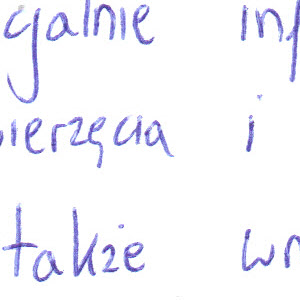 galnie inf
ierzęcia i
także wr